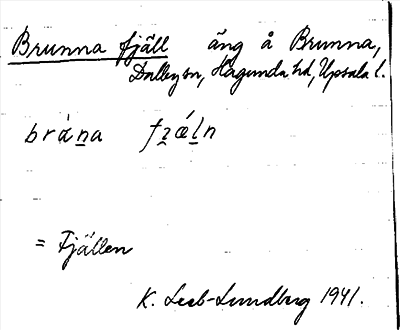 Brunna fjäll äng å Brunna,
Dalbyson, Hagunda hd, Upsala l.
brána fzǽln
= Fjällen
K. Leeb-Lundberg 1941.